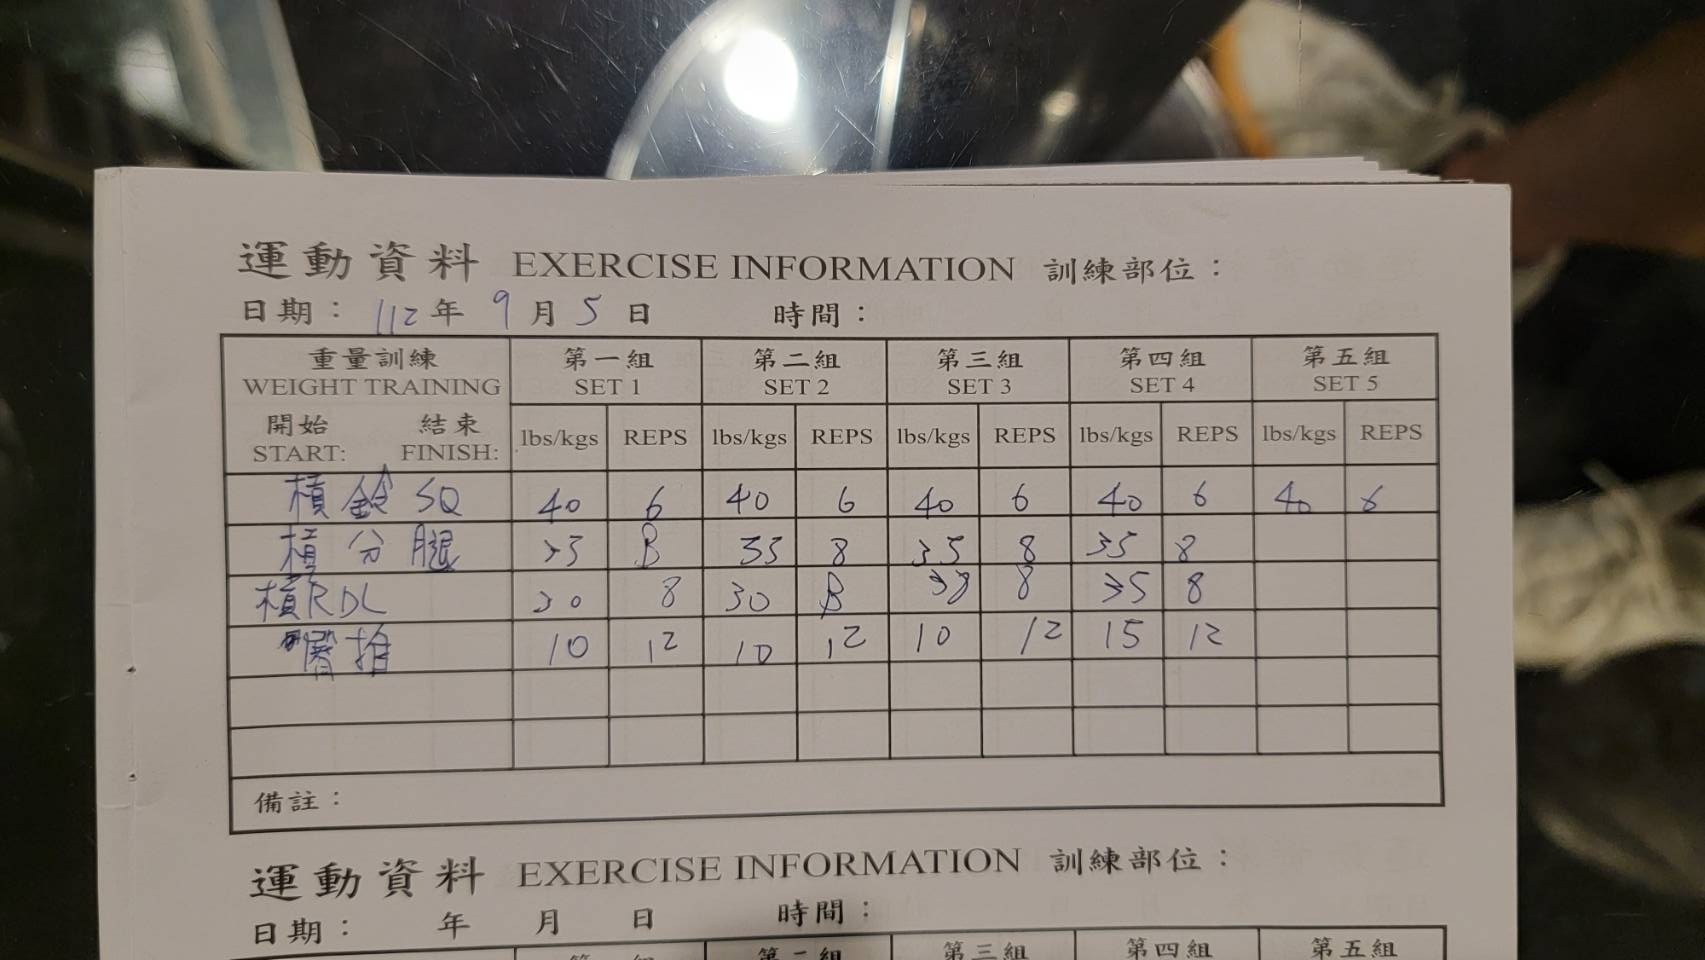 運動資料 EXERCISE INFORMATION 訓練部位：
日期：112年 9月 5日 時間：
重量訓練 第一組 第二組 第三組 第四組 第五組
WEIGHT TRAINING SET 1 SET 2 SET 3 SET 4 SET 5
開始 結束
START: FINISH: lbs/kgs REPS lbs/kgs REPS lbs/kgs REPS lbs/kgs REPS lbs/kgs REPS
槓鈴SQ 40 6 40 6 40 6 40 6 40 6
槓分腿 35 8 35 8 35 8 35 8
槓RDL 30 8 30 8 8 35 8
臀推 10 12 10 12 10 12 15 12
備註：
運動資料 EXERCISE INFORMATION 訓練部位：
日期： 年 月 日 時間：
第二組 第三組 第四組 第五組